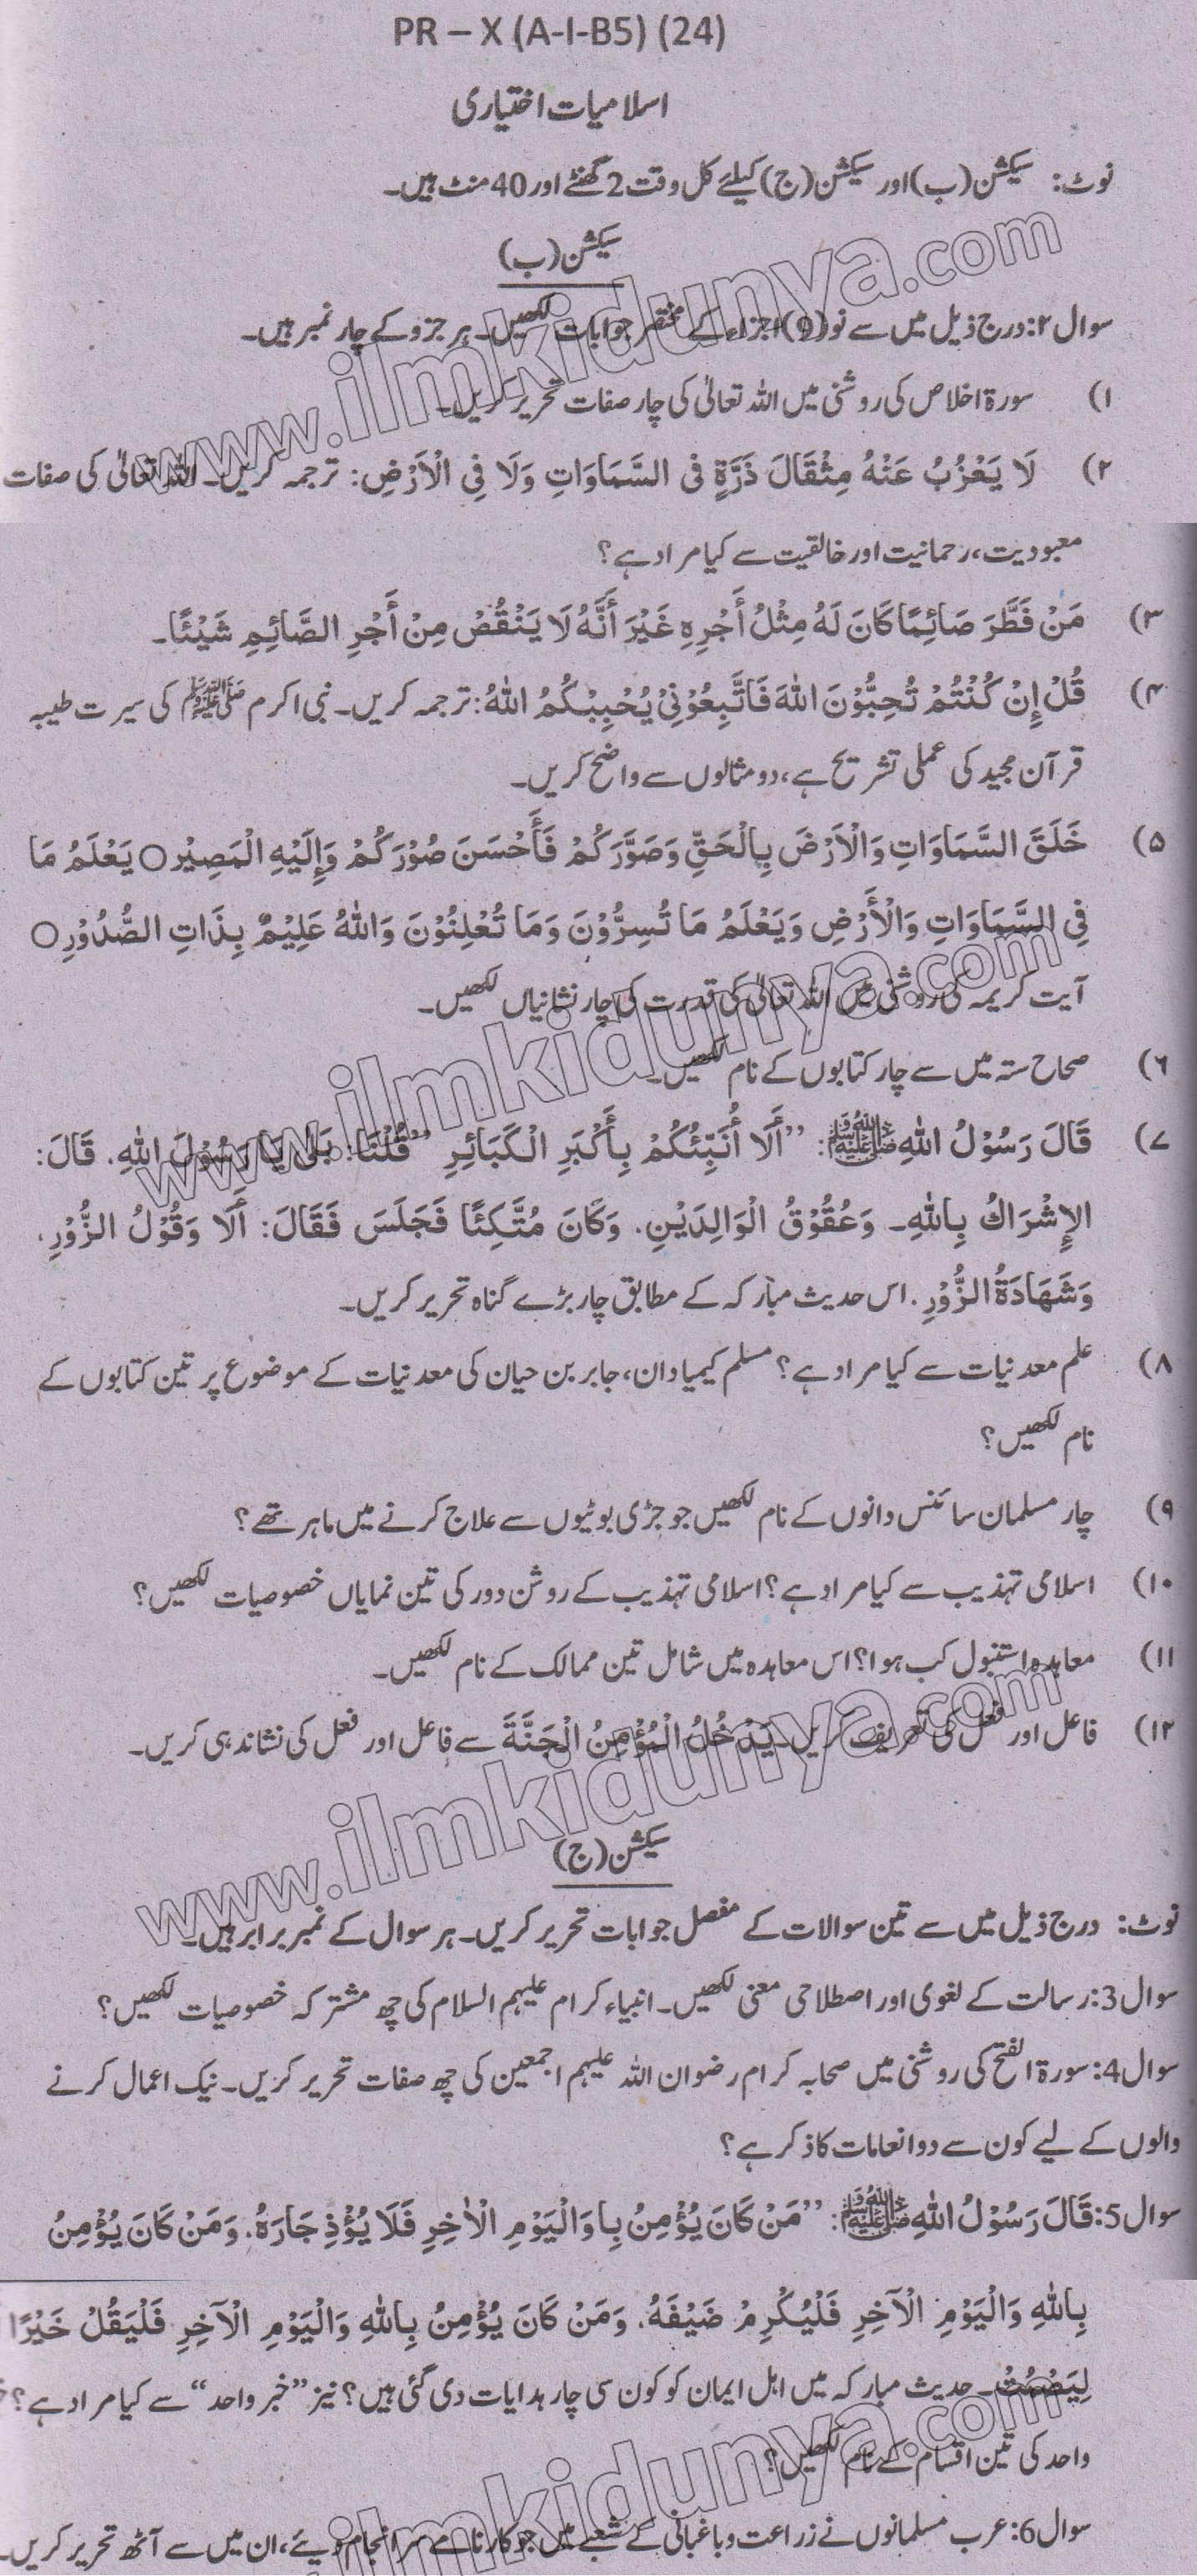 PR – X (A-I-B5) (24)
اسلامیات اختیاری
نوٹ: سیکشن (ب) اور سیکشن (ج) کیلئے کل وقت 2 گھنٹے اور 40 منٹ ہیں۔
سیکشن (ب)
سوال ۲: درج ذیل میں سے نو (9) اجزاء کے مختصر جوابات لکھیں۔ ہر جزو کے چار نمبر ہیں۔
۱) سورۃ اخلاص کی روشنی میں اللہ تعالیٰ کی چار صفات تحریر کریں۔
۲) لَا يَعْزُبُ عَنْهُ مِثْقَالَ ذَرَّةٍ فِى السَّمَاوَاتِ وَلَا فِي الْاَرْضِ: ترجمہ کریں۔ اللہ تعالیٰ کی صفات
معبودیت، رحمانیت اور خالقیت سے کیا مراد ہے؟
۳) مَنْ فَطَّرَ صَائِمًا كَانَ لَهُ مِثْلُ أَجْرِهِ غَيْرَ أَنَّهُ لَا يَنْقُصُ مِنْ أَجْرِ الصَّائِمِ شَيْئًا۔
۴) قُلْ إِنْ كُنْتُمْ تُحِبُّوْنَ اللهَ فَاتَّبِعُوْنِىْ يُحْبِبْكُمُ اللهُ: ترجمہ کریں۔ نبی اکرم ﷺ کی سیرت طیبہ
قرآن مجید کی عملی تشریح ہے، دو مثالوں سے واضح کریں۔
۵) خَلَقَ السَّمَاوَاتِ وَالْاَرْضَ بِالْحَقِّ وَصَوَّرَكُمْ فَأَحْسَنَ صُوْرَكُمْ وَإِلَيْهِ الْمَصِيْر ○ يَعْلَمُ مَا
فِي السَّمَاوَاتِ وَالْأَرْضِ وَيَعْلَمُ مَا تُسِرُّوْنَ وَمَا تُعْلِنُوْنَ وَاللهُ عَلِيْمٌ بِذَاتِ الصُّدُوْرِ ○
آیت کریمہ کی روشنی میں اللہ تعالیٰ کی قدرت کی چار نشانیاں لکھیں۔
۶) صحاح ستہ میں سے چار کتابوں کے نام لکھیں۔
۷) قَالَ رَسُوْلُ اللهِ ﷺ: ”أَلَا أُنَبِّئُكُمْ بِأَكْبَرِ الْكَبَائِرِ“ قُلْنَا: بَلٰى يَا رَسُوْلَ اللهِ. قَالَ:
الإِشْرَاكُ بِاللهِ۔ وَعُقُوْقُ الْوَالِدَيْنِ. وَكَانَ مُتَّكِئًا فَجَلَسَ فَقَالَ: أَلَا وَقُوْلُ الزُّوْرِ.
وَشَهَادَةُ الزُّوْرِ. اس حدیث مبارکہ کے مطابق چار بڑے گناہ تحریر کریں۔
۸) علم معدنیات سے کیا مراد ہے؟ مسلم کیمیا دان، جابر بن حیان کی معدنیات کے موضوع پر تین کتابوں کے
نام لکھیں؟
۹) چار مسلمان سائنس دانوں کے نام لکھیں جو جڑی بوٹیوں سے علاج کرنے میں ماہر تھے؟
۱۰) اسلامی تہذیب سے کیا مراد ہے؟ اسلامی تہذیب کے روشن دور کی تین نمایاں خصوصیات لکھیں؟
۱۱) معاہدہ استنبول کب ہوا؟ اس معاہدہ میں شامل تین ممالک کے نام لکھیں۔
۱۲) فاعل اور فعل کی تعریف کریں۔ يَدْخُلُ الْمُؤْمِنُ الْجَنَّةَ سے فاعل اور فعل کی نشاندہی کریں۔
سیکشن (ج)
نوٹ: درج ذیل میں سے تین سوالات کے مفصل جوابات تحریر کریں۔ ہر سوال کے نمبر برابر ہیں۔
سوال 3: رسالت کے لغوی اور اصطلاحی معنی لکھیں۔ انبیاء کرام علیہم السلام کی چھ مشترکہ خصوصیات لکھیں؟
سوال 4: سورۃ الفتح کی روشنی میں صحابہ کرام رضوان اللہ علیہم اجمعین کی چھ صفات تحریر کریں۔ نیک اعمال کرنے
والوں کے لیے کون سے دو انعامات کا ذکر ہے؟
سوال 5: قَالَ رَسُوْلُ اللهِ ﷺ: ”مَنْ كَانَ يُؤْمِنُ بِا وَالْيَوْمِ الْاٰخِرِ فَلَا يُؤْذِ جَارَهُ. وَمَنْ كَانَ يُؤْمِنُ
بِاللهِ وَالْيَوْمِ الْآخِرِ فَلْيُكْرِمْ ضَيْفَهُ. وَمَنْ كَانَ يُؤْمِنُ بِاللهِ وَالْيَوْمِ الْآخِرِ فَلْيَقُلْ خَيْرًا
لِيَصْمُتْ۔ حدیث مبارکہ میں اہل ایمان کو کون سی چار ہدایات دی گئی ہیں؟ نیز ”خبر واحد“ سے کیا مراد ہے؟
واحد کی تین اقسام کے نام لکھیں؟
سوال 6: عرب مسلمانوں نے زراعت و باغبانی کے شعبے میں جو کارنامے سرانجام دیئے، ان میں سے آٹھ تحریر کریں۔
www.ilmkidunya.com
www.ilmkidunya.com
www.ilmkidunya.com
www.ilmkidunya.com